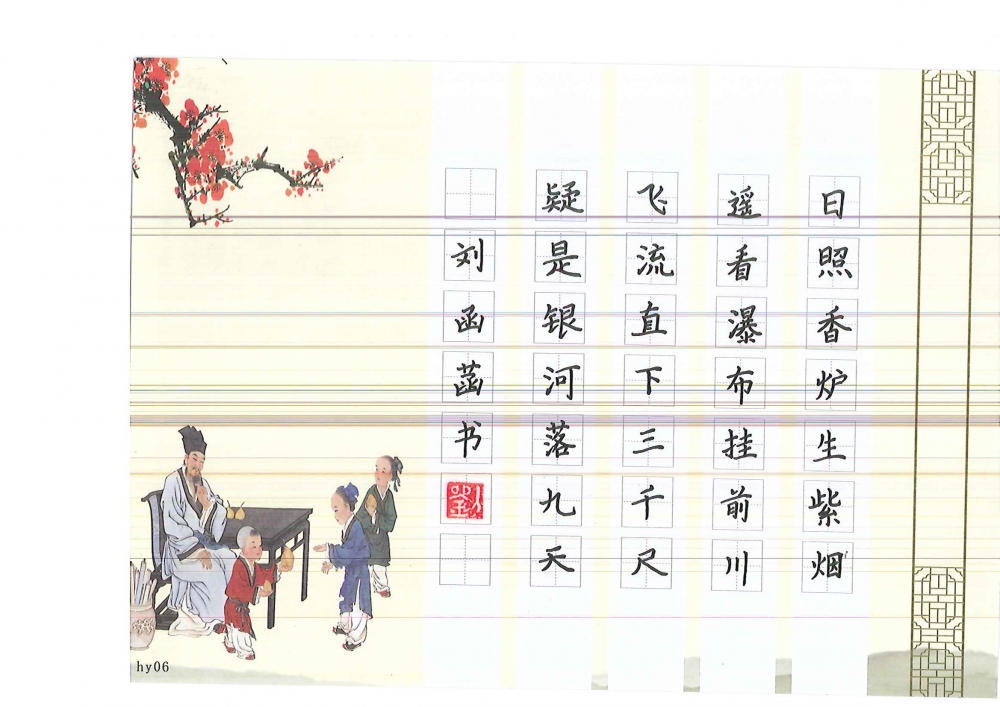 日照香炉生紫烟
遥看瀑布挂前川
飞流直下三千尺
疑是银河落九天
刘函菡书
劉
hy06